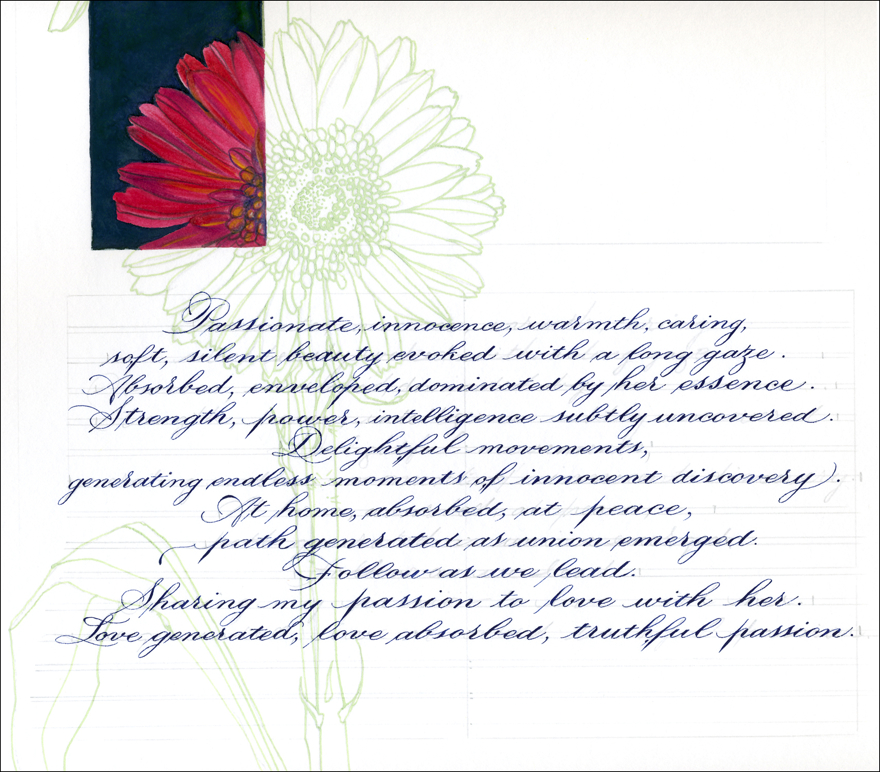 Passionate, innocence, warmth, caring,
soft, silent beauty evoked with a long gaze.
Absorbed, enveloped, dominated by her essence.
Strength, power, intelligence subtly uncovered.
Delightful movements,
generating endless moments of innocent discovery.
At home, absorbed, at peace,
path generated as union emerged.
Follow as we lead.
Sharing my passion to love with her.
Love generated, love absorbed, truthful passion.